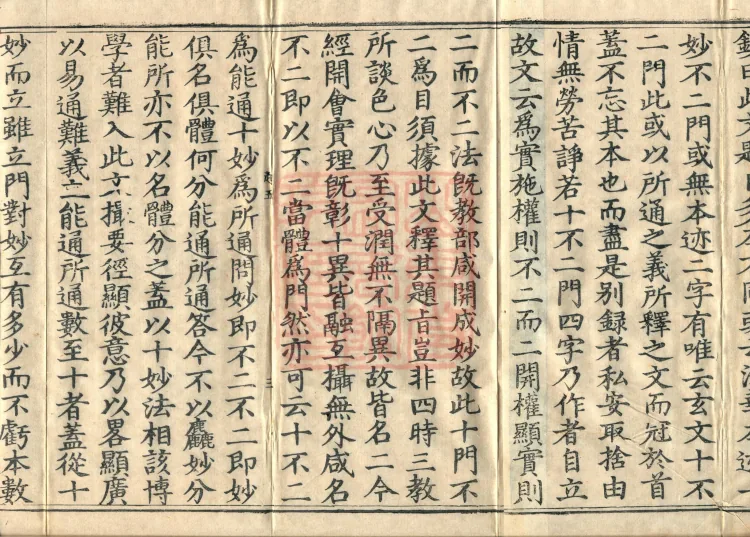 妙不二門或無本迹二字有唯云玄文十不
二門此或以所通之義所釋之文而冠於首
蓋不忘其本也而盡是別録者私安取捨由
情無勞苦諍若十不二門四字乃作者自立
故文云爲實施權則不二而二開權顯實則
二而不二法旣教部咸開成妙故此十門不
二爲目須據此文釋其題旨豈非四時三教
所談色心乃至受潤無不隔異故皆名二今
經開會實理旣彰十異皆融互攝無外咸名
不二即以不二當體爲門然亦可云十不二
三
爲能通十妙爲所通問妙即不二不二即妙
俱名俱體何分能通所通答今不以麤妙分
能所亦不以名體分之蓋以十妙法相該博
學者難入此文撮要徑顯彼意乃以畧顯廣
以易通難義立能通所通數至十者蓋從十
妙而立雖立門對妙互有多少而不虧本數